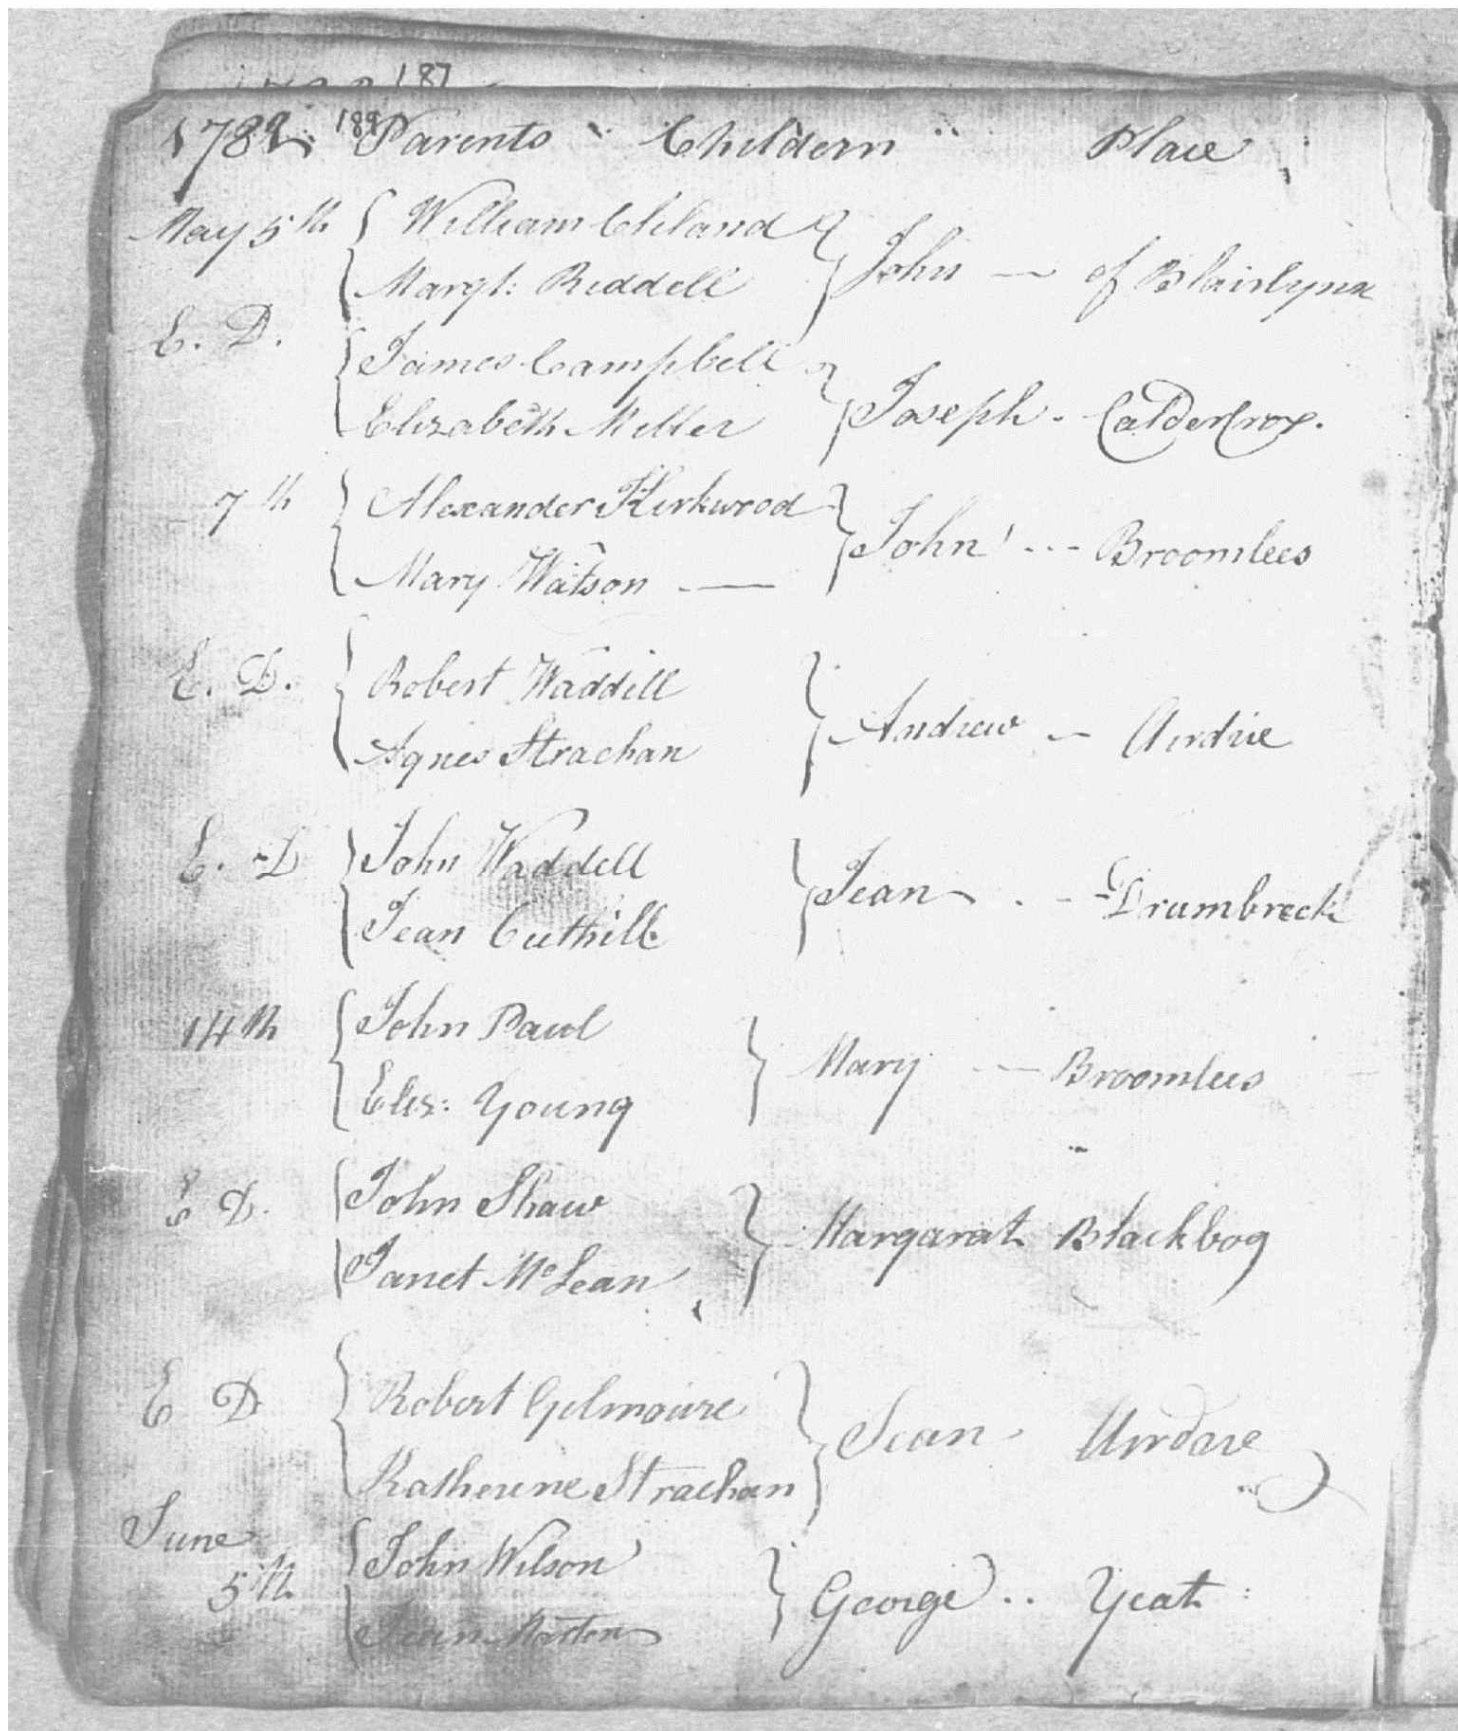 187
1782 189 Parents Childern Place
May 5th William Cleland
Margt: Reddell John — of Blairlynn
E. D. James Campbell
Elizabeth Miller Joseph - CalderCrox.
7th Alexander Kirkwood
Mary Watson — John --- Broomlees
E. D. Robert Waddill
Agnes Strachan Andrew — Airdrie
E. D John Waddell
Jean Cuthill Jean . -- Drumbreck
14th John Paul
Eliz: Young Mary --- Broomlees
E D. John Shaw
Janet McLean Margarat Blackbog
E D Robert Gilmoure
Katherine Strachan Jean
June
5th John Wilson
Jean George .. Yeat